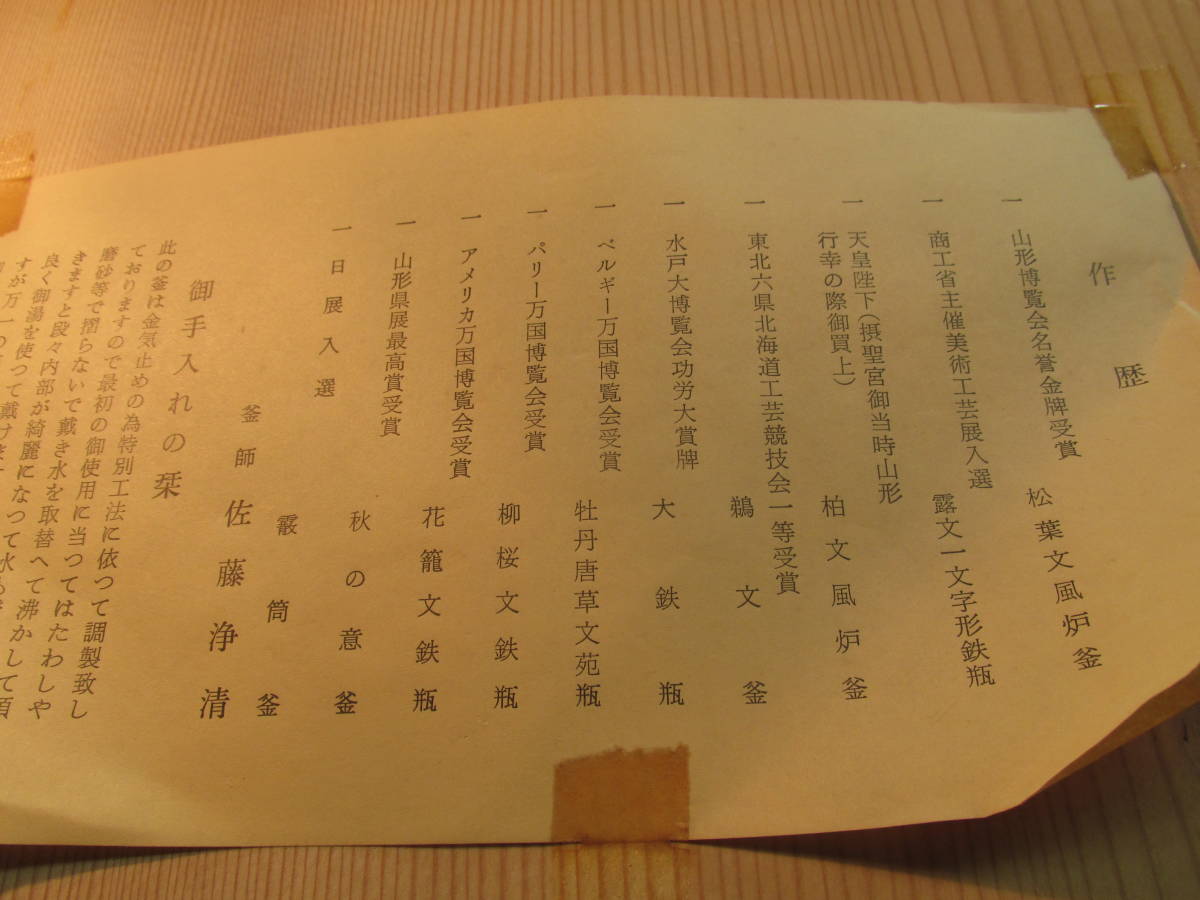 作歴
一 山形博覧会名誉金牌受賞 松葉文風炉釜
一 商工省主催美術工芸展入選 露文一文字形鉄瓶
一 天皇陛下(摂聖宮御当時山形
行幸の際御買上) 柏文風炉釜
一 東北六県北海道工芸競技会一等受賞 鵜文釜
一 水戸大博覧会功労大賞牌 大鉄瓶
一 ベルギー万国博覧会受賞 牡丹唐草文苑瓶
一 パリー万国博覧会受賞 柳桜文鉄瓶
一 アメリカ万国博覧会受賞 花籠文鉄瓶
一 山形県展最高賞受賞 秋の意釜
一 日展入選 霰筒釜
釜師 佐藤浄清
御手入れの栞
此の釜は金気止めの為特別工法に依つて調製致し
ておりますので最初の御使用に当つてはたわしや
磨砂等で摺らないで戴き水を取替へて沸かして頂
きますと段々内部が綺麗になつて水も
良く御湯を使つて戴けます
すが万一の